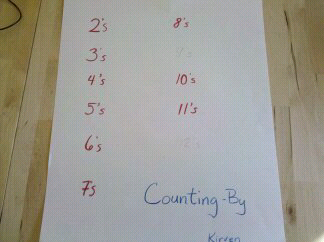 2's
3's
4's
5's
6's
7s
8's
10's
11's
Counting-By
Kirven